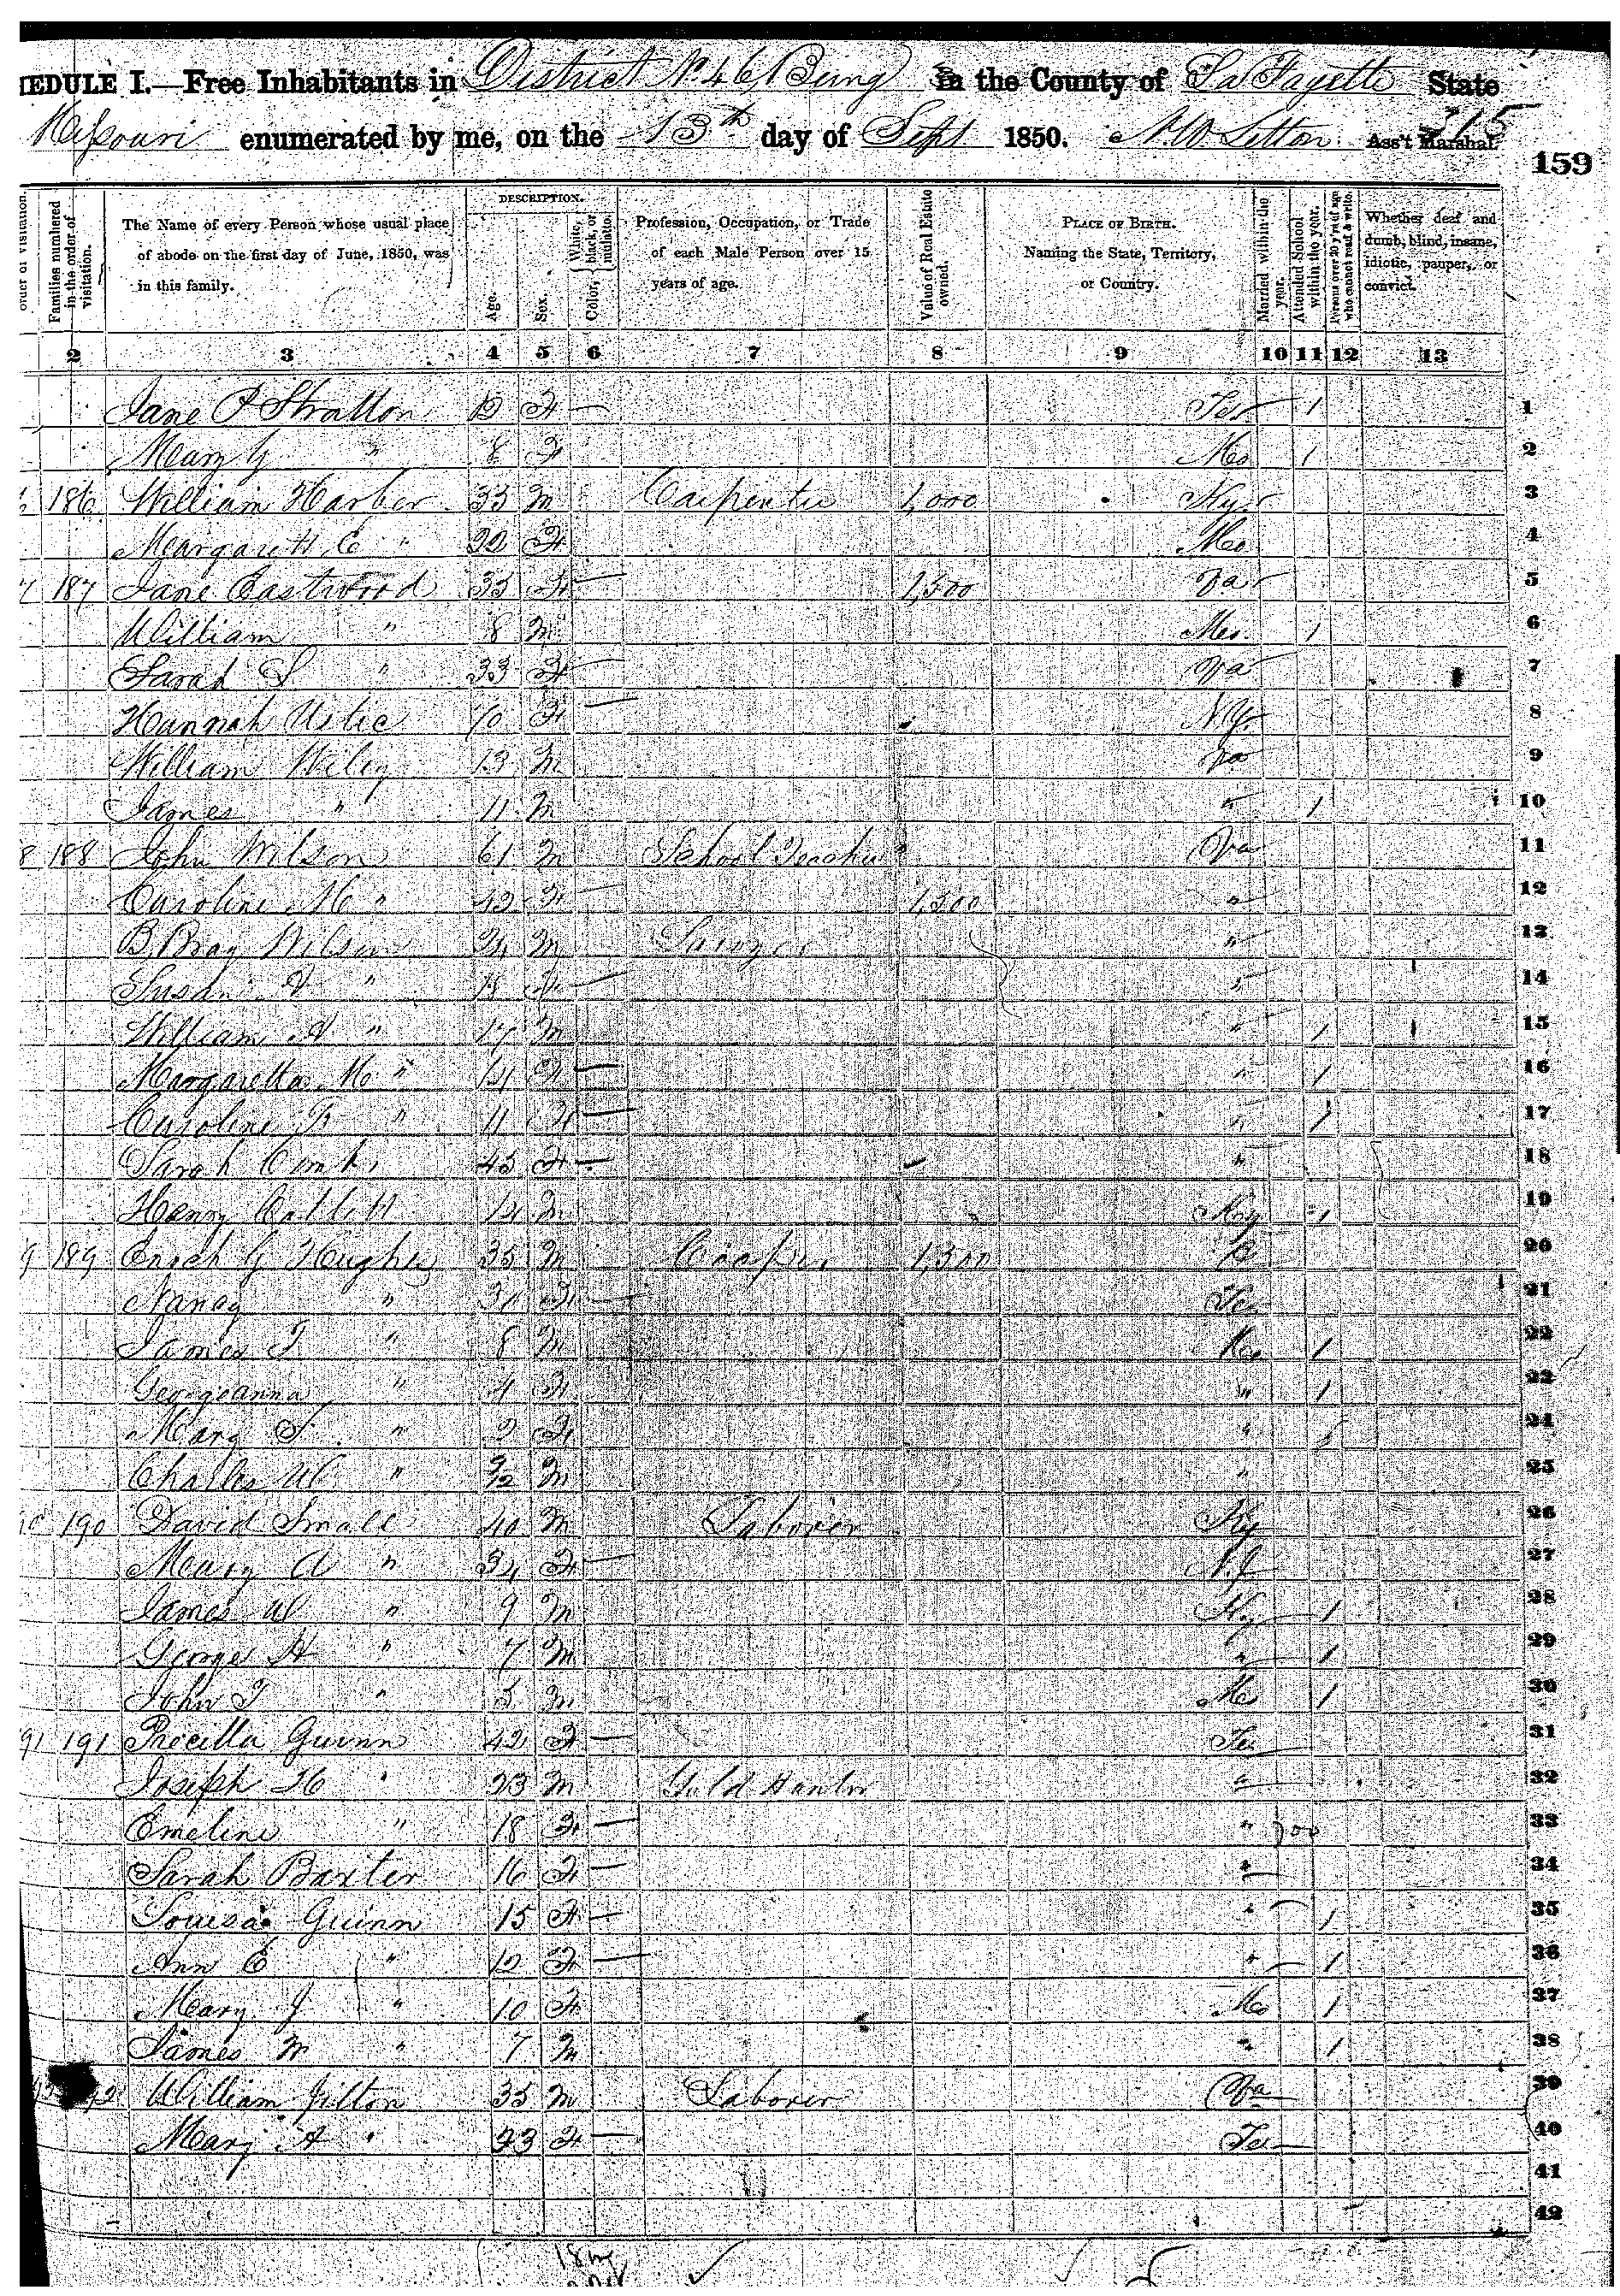 EDULE I.—Free Inhabitants in District No 46, Being in the County of La Fayette State
Missouri enumerated by me, on the 13th day of Sept 1850. Ass't Marshal. 215
159
order of visitation.
Families numbered in the order of visitation.
The Name of every Person whose usual place of abode on the first day of June, 1850, was in this family.
DESCRIPTION.
Age.
Sex.
Color, White, black, or mulatto.
Profession, Occupation, or Trade of each Male Person over 15 years of age.
Value of Real Estate owned.
PLACE OF BIRTH. Naming the State, Territory, or Country.
Married within the year.
Attended School within the year.
Persons over 20 y'rs of age who cannot read & write.
Whether deaf and dumb, blind, insane, idiotic, pauper, or convict.
2 3 4 5 6 7 8 9 10 11 12 13
Jane P Stratton F Ten 1 1
Mary G " 8 F Mo 1 2
186 William Harber 33 M Carpenter 1,000 Ky 3
Margarett E " 22 F Mo 4
7 187 Jane Eastwood 35 F 1,500 Va 5
William " 8 M Mo. 1 6
Sarah S " 33 F Va 7
Hannah 70 F NY 8
William Wiley 13 M Va 9
James " 11 M " 1 10
8 188 John Wilson 61 M School Teacher Va 11
Caroline M " 42 F 1,500 " 12
B. Bray Wilson 24 M " 13
Susan " F " 14
William A " 17 M " 1 15
Margaretta M " 14 F " 1 16
Caroline F " 11 F " 1 17
Sarah 45 F " 18
Henry Catlett 14 M Ky 1 19
9 189 Enoch G Hughes 35 M Cooper 1,300 20
Nancy " 30 F Te. 21
James T " 8 M Mo 1 22
Georgeanna " 4 F " 1 23
Mary F. " 2 F " 24
Charles W. " M " 25
190 David Small 40 M Laborer Ky 26
Mary A " 34 F 27
James W " 9 M Ky 1 28
George H " 7 M " 1 29
John T " 5 M Mo 1 30
91 191 Pricilla Guinn 42 F Te. 31
Joseph H " 23 M Gold Hunter " 32
Emeline " 18 F " 33
Sarah Baxter 16 F " 34
Louisa Guinn 15 F " 1 35
Ann E " 12 F " 1 36
Mary J " 10 F Mo 1 37
James M " 7 M " 1 38
William Jilton 35 M Laborer Va 39
Mary A " 23 F Te 40
41
42